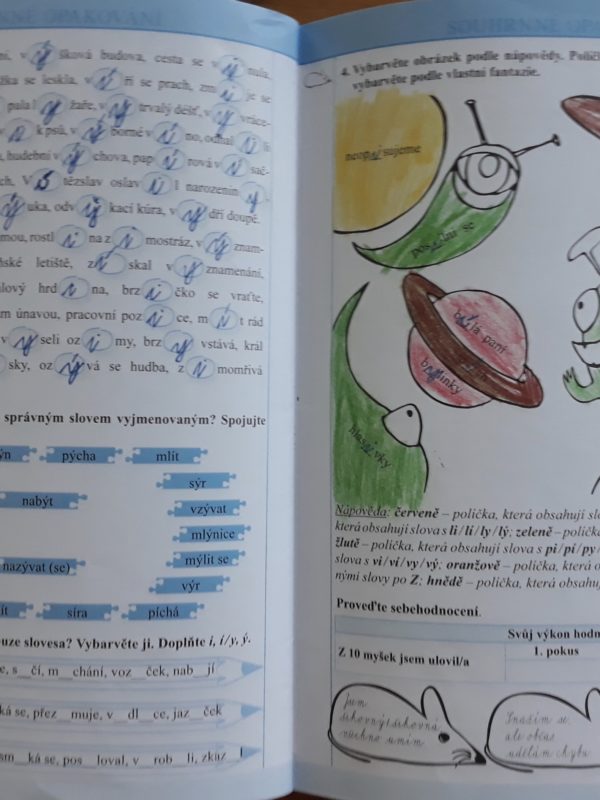 SOUHRNNÉ OPAKOVÁNÍ
ní, v ý šková budova, cesta se v i nula,
žka se leskla, v í ří se prach, zm i je se
pula l y žaře, v y trvalý déšť, v y vráce-
k psů, v ý borné v í no, odhal i li
a, hudební v ý chova, pap í rová v i sač-
ch. V í tězslav oslav i l narozenin y.
ý uka, odv y kací kúra, v y dří doupě.
mou, rostl i na z i mostráz, v ý znam-
ské letiště, z í skal v y znamenání,
lový hrd i na, brz i čko se vraťte,
m únavou, pracovní poz i ce, m í t rád
v y seli oz i my, brz y vstává, král
sky, oz ý vá se hudba, z i momřivá
správným slovem vyjmenovaným? Spojujte
ýn
pýcha
mlít
sýr
nabýt
vzývat
mlýnice
nazývat (se)
mýlit se
výr
ít
síra
píchá
uze slovesa? Vybarvěte ji. Doplňte i, í/y, ý.
e, s__čí, m__chání, voz__ček, nab__jí
ká se, přez__muje, v__dl__ce, jaz__ček
sm__ká se, pos__loval, v__rob__li, zkuz__l
SOUHRNNÉ
4. Vybarvěte obrázek podle nápovědy. Políč
vybarvěte podle vlastní fantazie.
nevop i sujeme
pos a dil se
b í lá paní
b y linky
hlas i vky
Nápověda: červeně – políčka, která obsahují slo
která obsahují slova s li/lí/ly/lý; zeleně – políčk
žlutě – políčka, která obsahují slova s pi/pí/py/
slova s vi/ví/vy/vý; oranžově – políčka, která ob
nými slovy po Z; hnědě – políčka, která obsahu
Proveďte sebehodnocení.
Svůj výkon hodn
Z 10 myšek jsem ulovil/a
1. pokus
Jsem
šikovný/šikovná
všechno umím.
Snažím se,
ale občas
udělám chybu